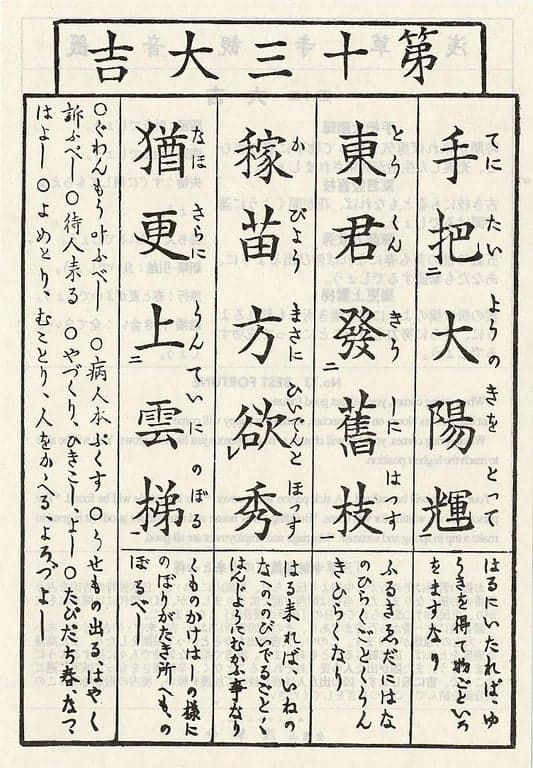 第十三大吉
手把二大陽輝一
てに たいようの きをとって
はるにいたれば、ゆ
うきを得、物ごといろ
をますなり
東君發二舊枝一
とうくん きうしはす
ふるきゑだにはな
のひらくごとくうん
きひらくなり
稼苗方欲レ秀
かびよう まさに ひいでんと ほっす
はる来ればいねの
なへののびいでるごとく
はんじょうにむかふ事なり
猶更上二雲梯一
なほ さらに うんていに のぼる
くものかけはしの様に
のぼりがたき所へもの
ぼるべし
○ぐわんもう叶ふべし ○病人本ぷくす ○うせもの出るはやく
訴ふべし○待人来る ○やづくり、ひきこし、よし○たびだち春、なつ
はよし○よめとり、むことり、人をかゝへるよろづよし